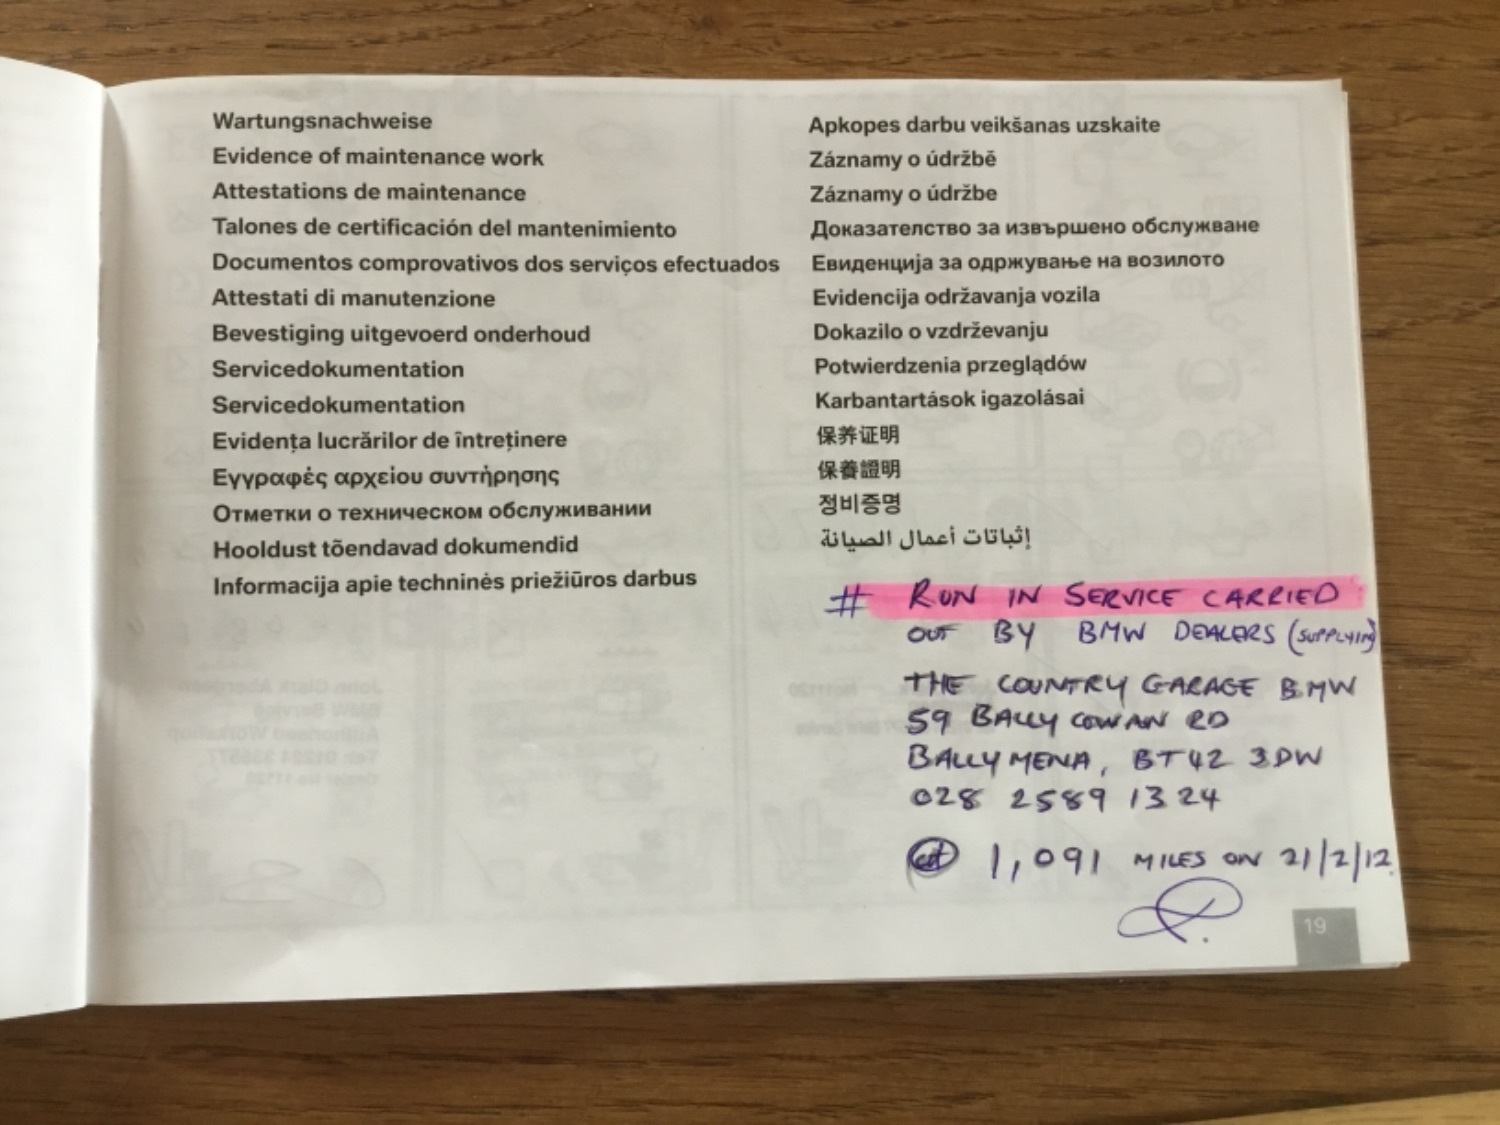 Wartungsnachweise
Evidence of maintenance work
Attestations de maintenance
Talones de certificación del mantenimiento
Documentos comprovativos dos serviços efectuados
Attestati di manutenzione
Bevestiging uitgevoerd onderhoud
Servicedokumentation
Servicedokumentation
Evidența lucrărilor de întreținere
Εγγραφές αρχείου συντήρησης
Отметки о техническом обслуживании
Hooldust tõendavad dokumendid
Informacija apie techninės priežiūros darbus
Apkopes darbu veikšanas uzskaite
Záznamy o údržbě
Záznamy o údržbe
Доказателство за извършено обслужване
Евиденција за одржување на возилото
Evidencija održavanja vozila
Dokazilo o vzdrževanju
Potwierdzenia przeglądów
Karbantartások igazolásai
保养证明
保養證明
정비증명
إثباتات أعمال الصيانة
# RUN IN SERVICE CARRIED
OUT BY BMW DEALERS (SUPPLYING)
THE COUNTRY GARAGE BMW
59 BALLYCOWAN RD
BALLYMENA, BT42 3DW
028 2589 1324
@ 1,091 MILES ON 21/2/12.
19